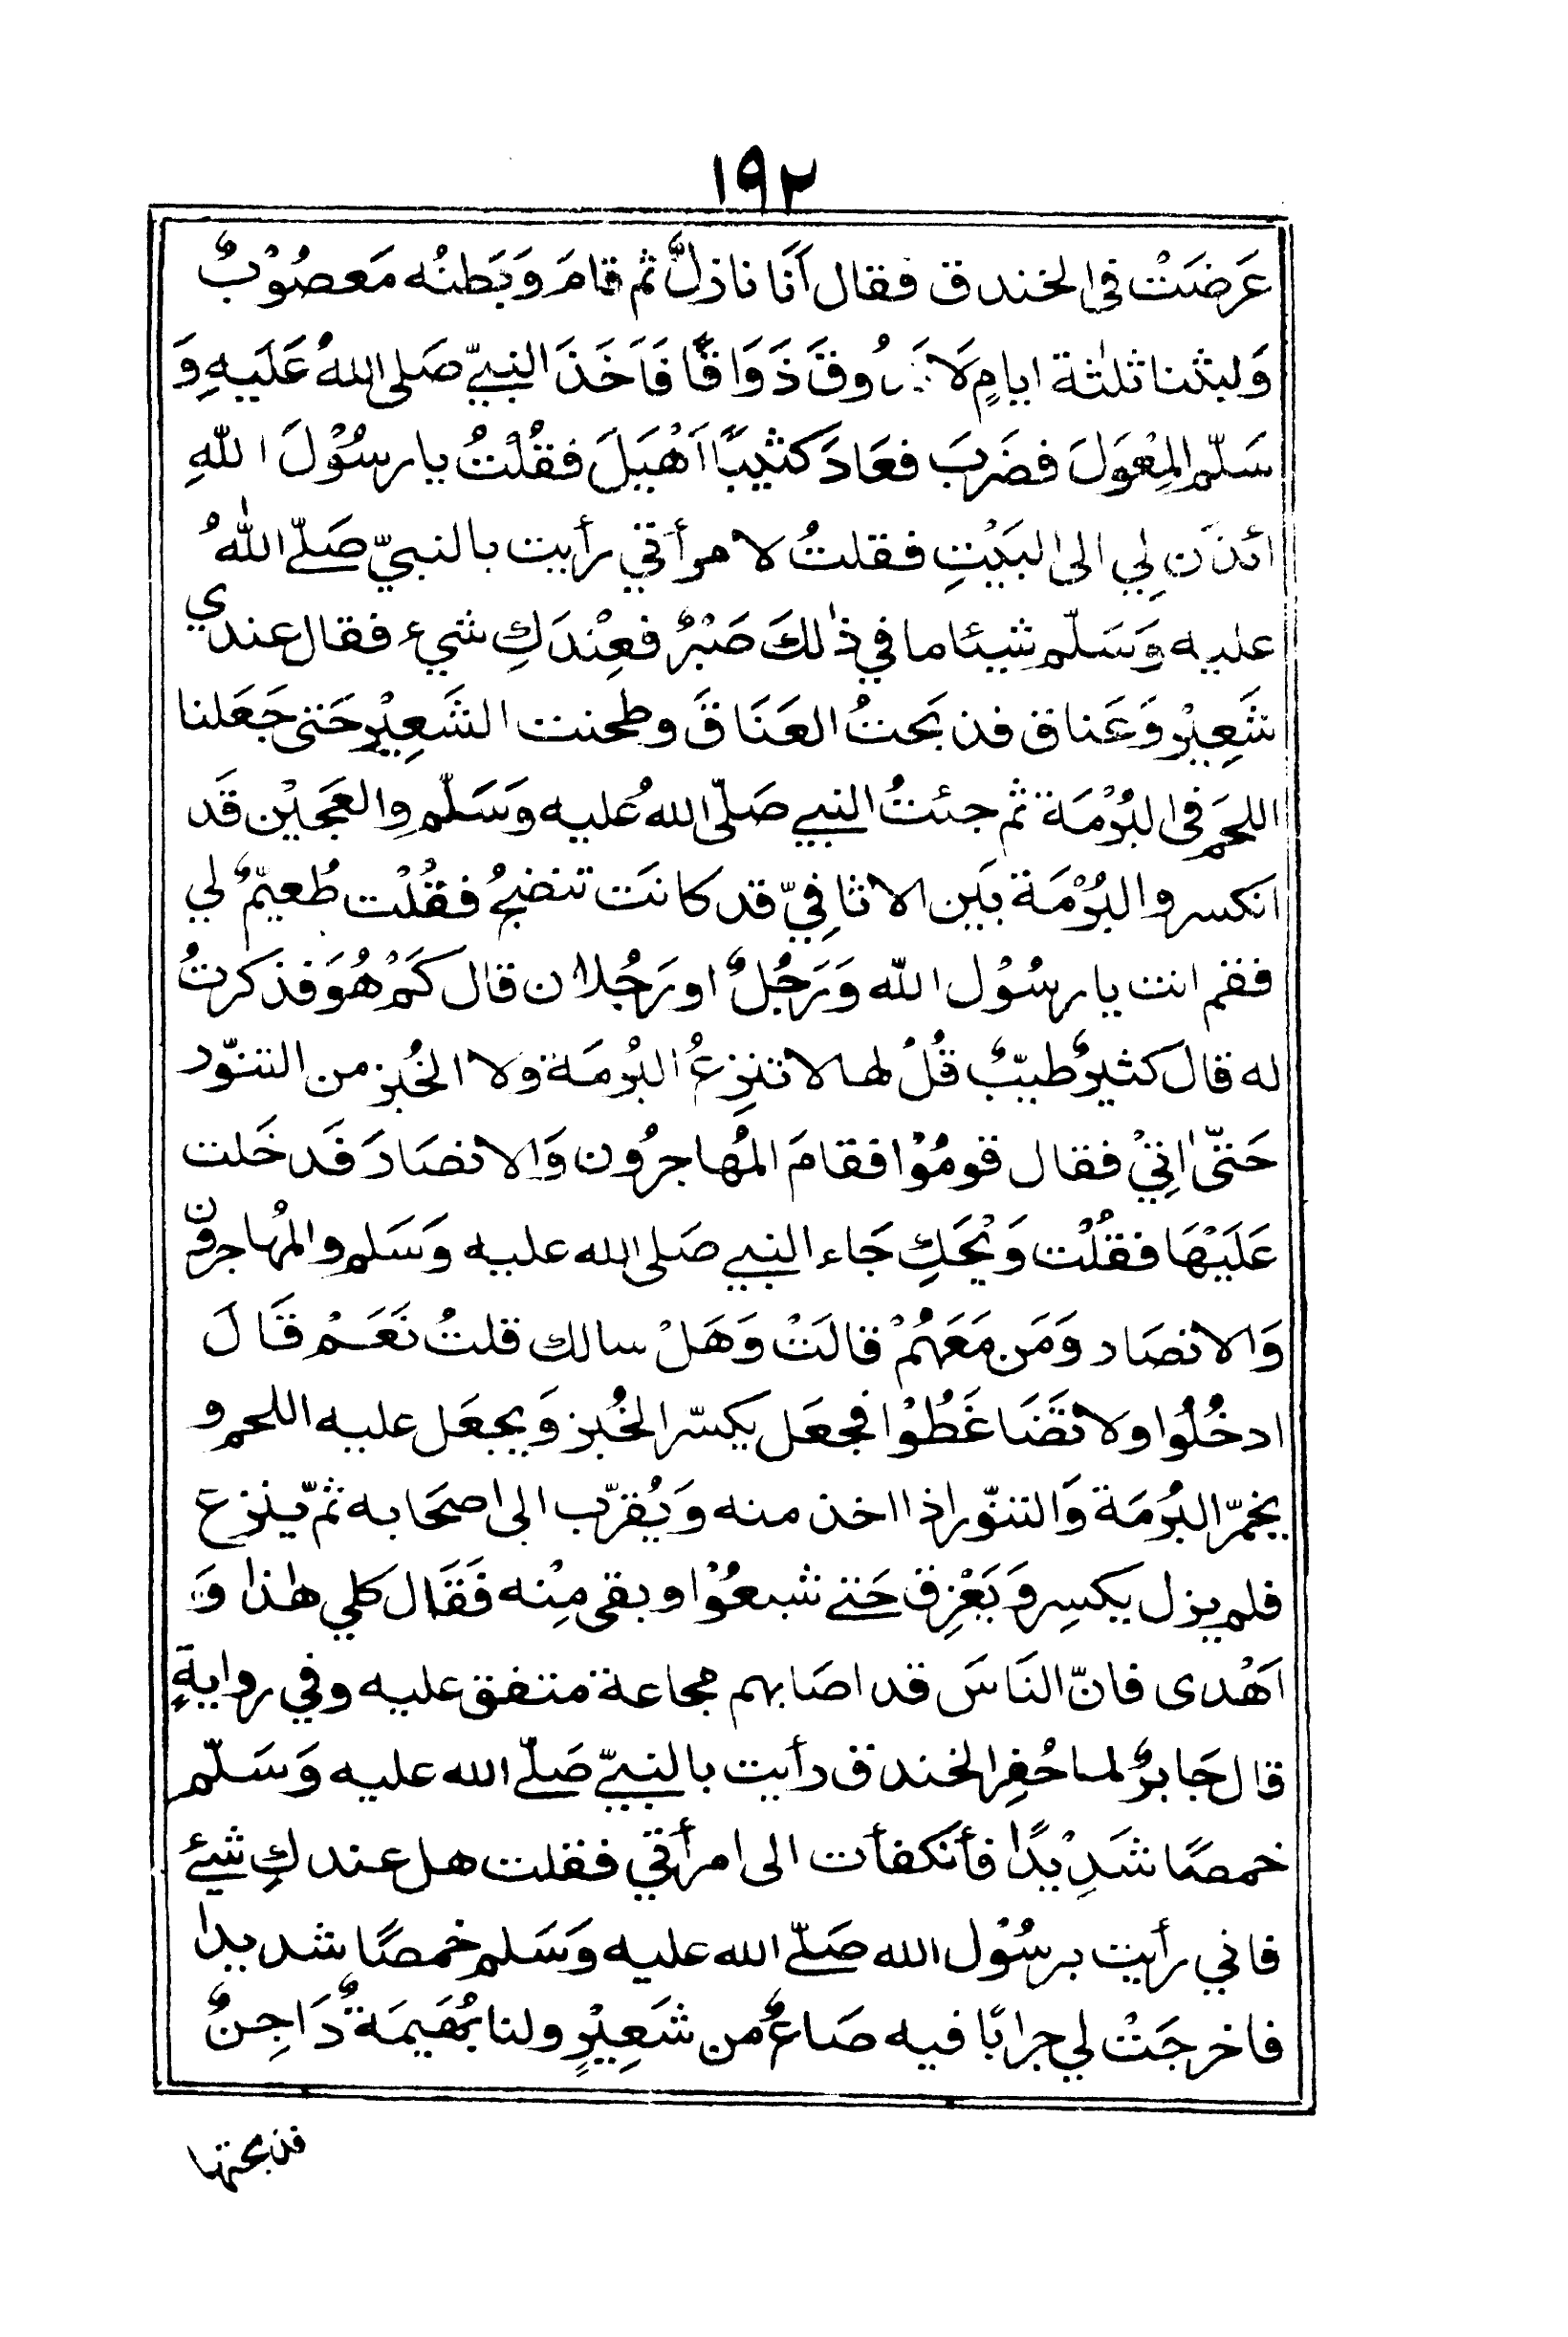 ١٩٢
عَرَضَتْ فى الخندق فقال اَنَا نازلٌ ثم قامَ وَبَطنُه مَعصُوْبٌ
وَلبثنا ثلٰثة ايامٍ لَا نَذُوقَ ذَوَاقًا فَاَخَذَ النبيّ صَلى اللهُ عَلَيهِ وَ
سَلّم المِعْوَلَ فضَرَبَ فعَادَ كثيبًا اَهْيَلَ فقُلْتُ يا رسُوْلَ اللّهِ
ائذَن لِي الى البَيْتِ فقلتُ لامرأتي رأيت بالنبيّ صَلّے اللّٰهُ
عليه وَسَلّم شيئا ما في ذٰلكَ صَبْرٌ فعِنْدَكِ شيء فقال عندي
شَعِيْر وَعَناق فذبَحتُ العَنَاقَ وطحنت الشَعِيْر حَتى جَعَلنا
اللحَم فى البُرْمَة ثم جئتُ النبي صَلّى اللهُ عليه وَسَلّم والعَجَيْن قَد
انكسر والبُرْمَة بَين الاثافِيّ قد كانَت تنضَجُ فقُلْت طُعيّمٌ لي
فقم انت يا رسُوْل اللّه وَرَجُلٌ او رَجُلان قال كَمْ هُوَ فذكرتُ
له قالَ كثيرٌ طيّبٌ قُلْ لها لا تنزِعُ البُرمَة ولا الخُبز من التنوّر
حَتّىٰ اٰتِيْ فقال قومُوْا فقامَ المُهاجرُون وَالانصَارَ فَدخَلت
عَلَيْهَا فقُلْت وَيْحَكِ جَاء النبي صَلى الله عليه وَسَلم والمُهاجرون
وَالانصَار وَمَن مَعَهُمْ قالَتْ وَهَلْ سالك قلتُ نَعَمْ قَالَ
ادخُلُوا ولا تَضَاغَطُوْا فجعَل يكسّر الخُبز وَيجعَل عليه اللحم و
يخمّر البُرمَة وَالتنوّر اذا اخذ منه وَيُقرّب الى اصحَابه ثمّ ينزع
فلم يزل يكسِر وَيَغْرِف حَتے شبعُوْا وبقى مِنْه فَقَال كلي هٰذا وَ
اَهْدى فانّ النَاسَ قد اصَابهم مجاعة متفق عليه وفي روايةٍ
قال جَابرٌ لما حُفِر الخندق رأيت بالنبيّ صَلّے الله عليه وَسَلّم
خمصًا شَدِيْدًا فأنكفأت الى امرأتي فقلت هل عندكِ شيئ
فاني رأيت برسُوْل الله صَلّے الله عليه وَسَلم خمصًا شديدا
فاخرجَتْ لي جرابًا فيه صَاعٌ من شَعِيْرٍ ولنا بُهَيمَةٌ دَاجِنٌ
فذبحتها